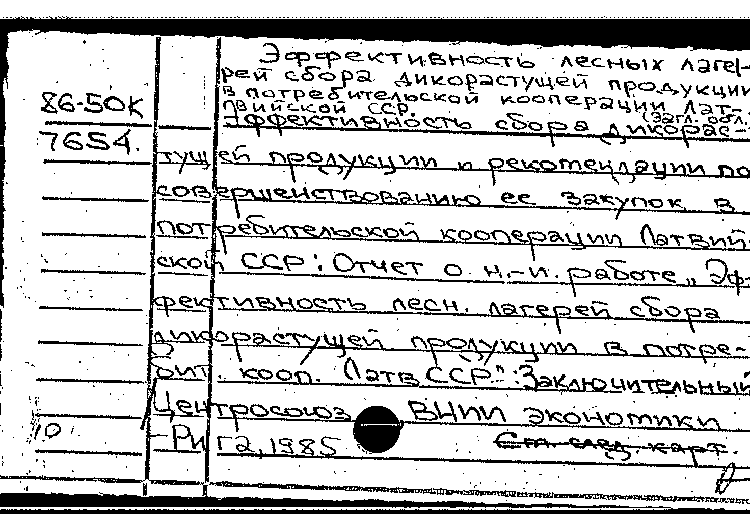 Эффективность лесных лаге-
рей сбора дикорастущей продукции
в потребительской кооперации Лат-
вийской ССР. (Загл. обл.)
86-50К
7654.
Эффективность сбора дикорас-
тущей продукции и рекомендации по
совершенствованию ее закупок в
потребительской кооперации Латвий
ской ССР: Отчет о н.-и. работе „Эф-
фективность лесн. лагерей сбора
дикорастущей продукции в потре-
бит. кооп. Латв ССР": Заключительный
Центросоюз ВНИИ экономики
- Рига, 1985
См. след. карт.
10